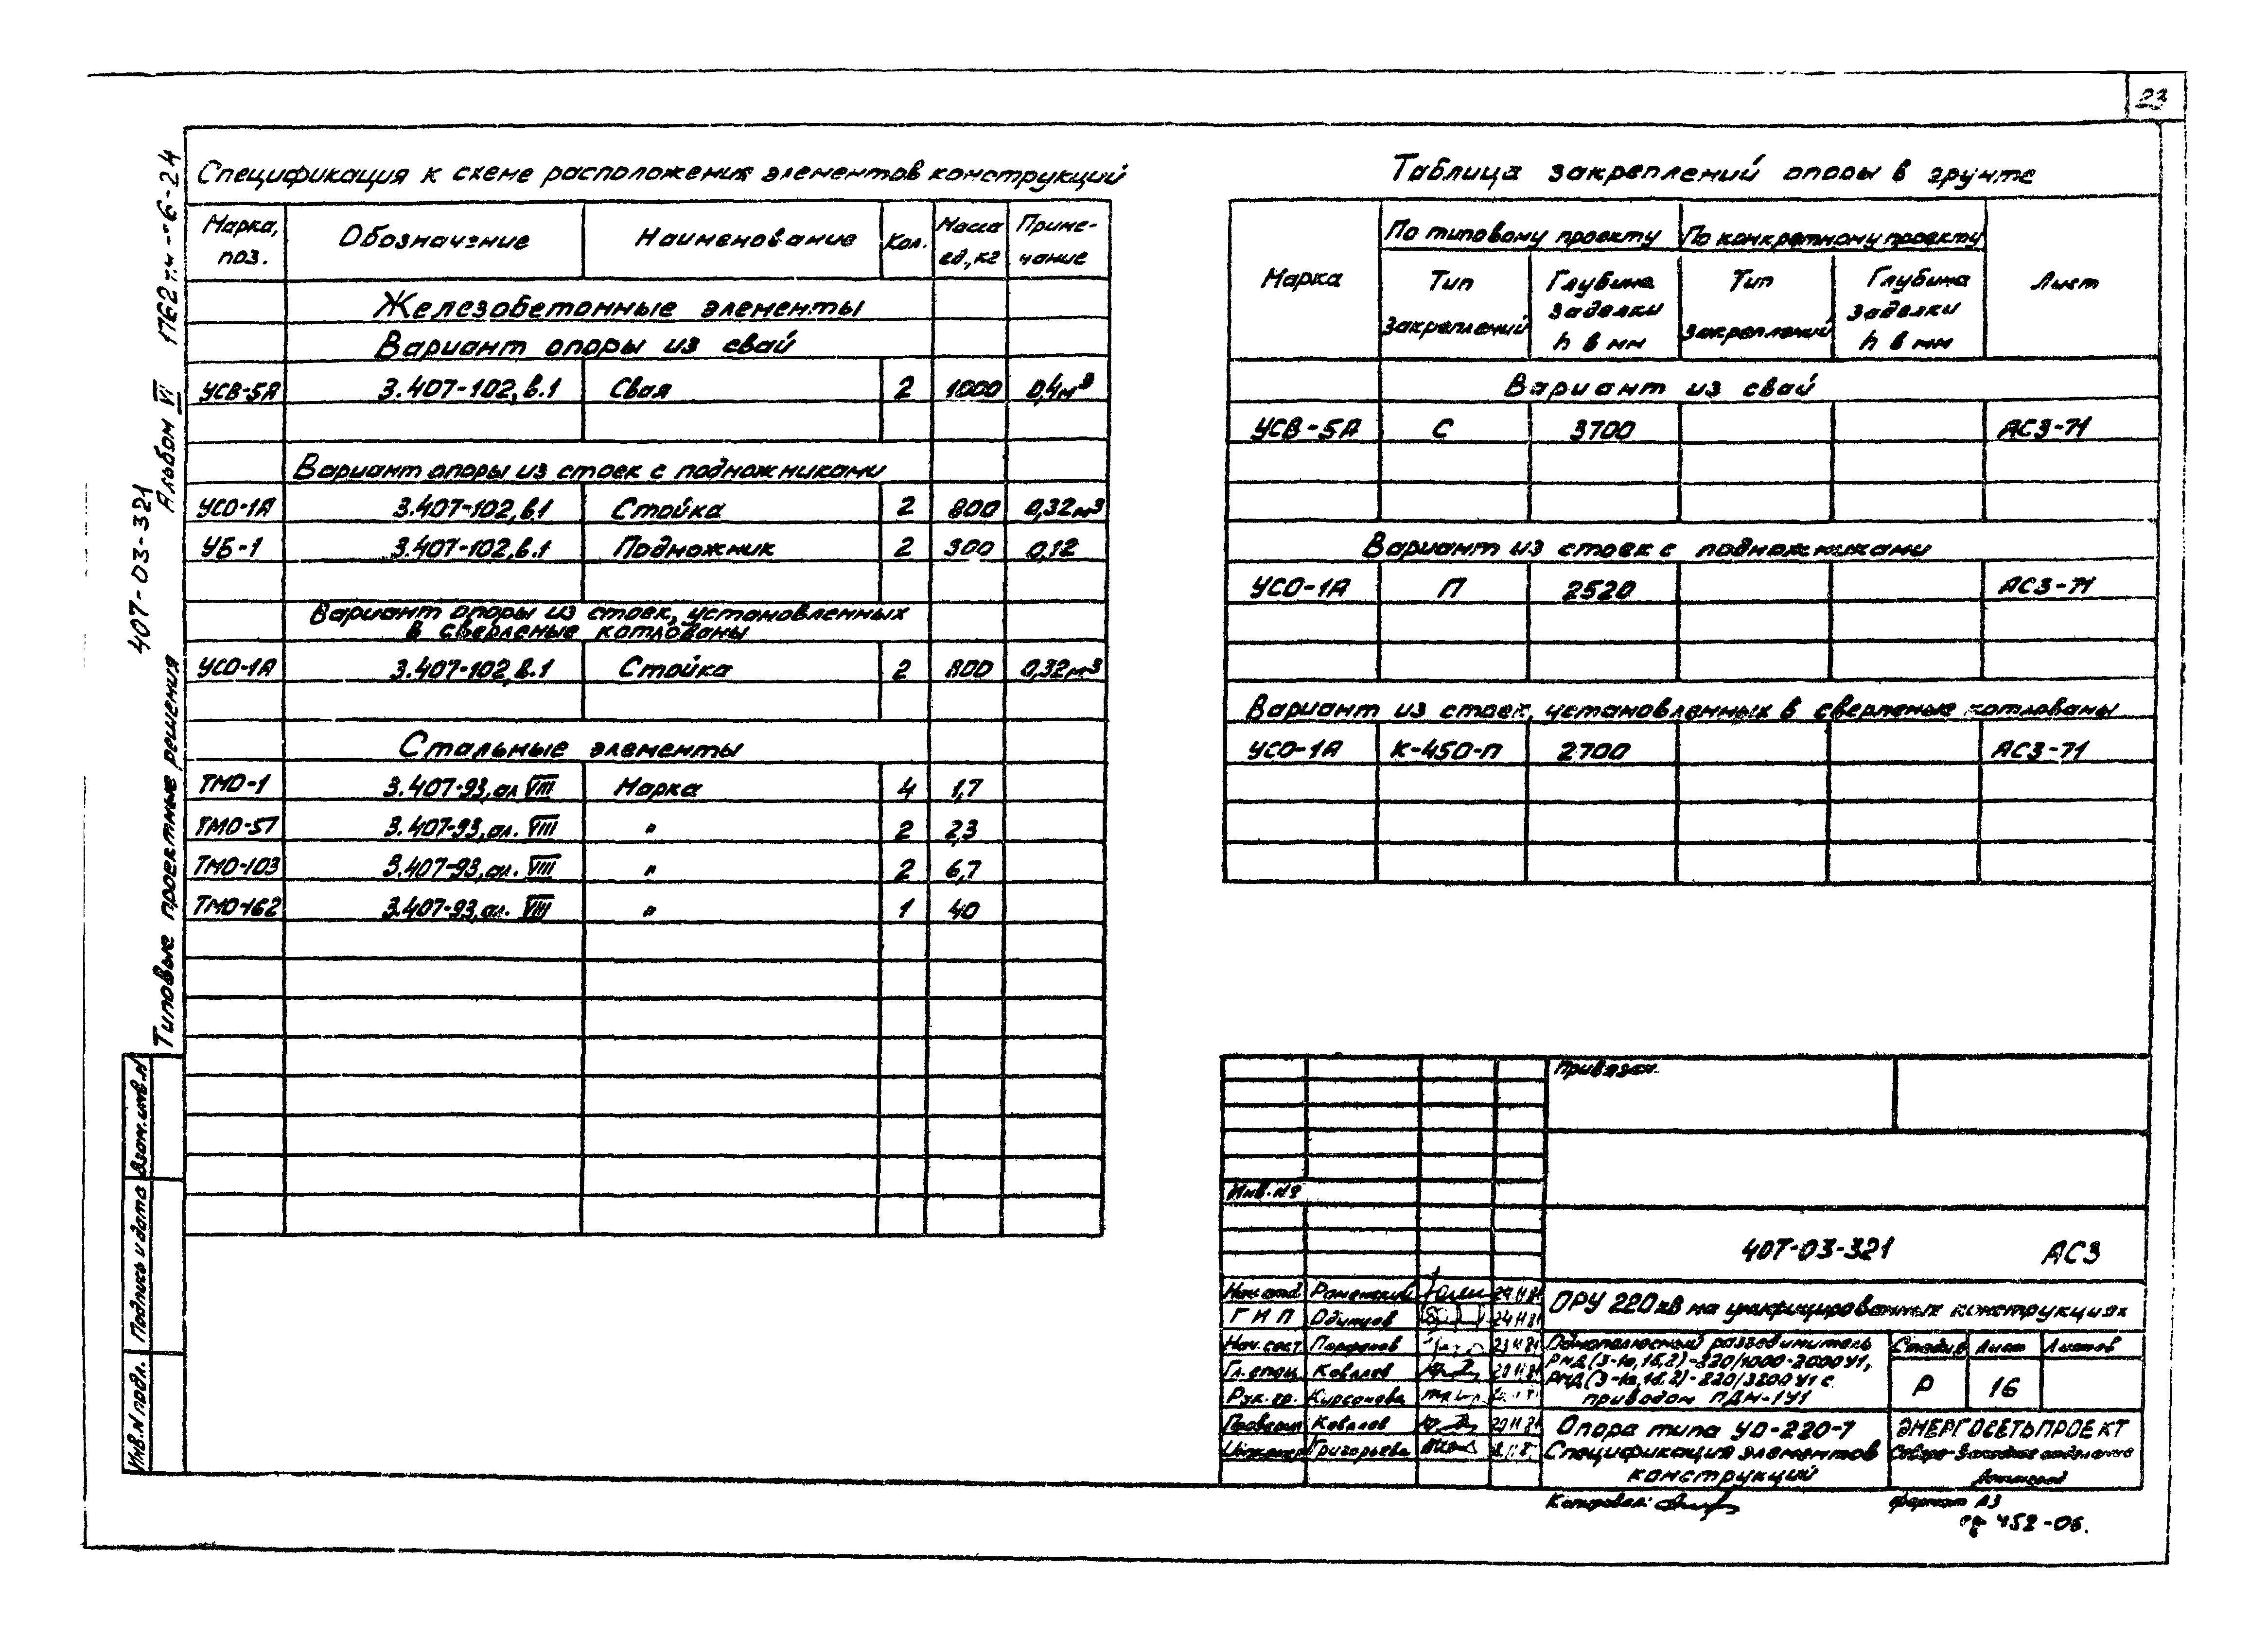 23
Спецификация к схеме расположения элементов конструкций
Марка, поз. Обозначение Наименование Кол. Масса ед., кг Примечание
Железобетонные элементы
Вариант опоры из свай
УСВ-5А 3.407-102, в.1 Свая 2 1000 0,4м³
Вариант опоры из стоек с подножниками
УСО-1А 3.407-102, в.1 Стойка 2 800 0,32м³
УБ-1 3.407-102, в.1 Подножник 2 300 0,12
Вариант опоры из стоек, установленных
в сверленые котлованы
УСО-1А 3.407-102, в.1 Стойка 2 800 0,32м³
Стальные элементы
ТМО-1 3.407-93, ал VIII Марка 4 1,7
ТМО-57 3.407-93, ал. VIII " 2 2,3
ТМО-103 3.407-93, ал. VIII " 2 6,7
ТМО-162 3.407-93, ал. VIII " 1 40
Таблица закреплений опоры в грунте
Марка По типовому проекту По конкретному проекту Лист
Тип закреплений Глубина заделки h в мм Тип закреплений Глубина заделки h в мм
Вариант из свай
УСВ-5А С 3700 АС3-71
Вариант из стоек с подножниками
УСО-1А П 2520 АС3-71
Вариант из стоек, установленных в сверленые котлованы
УСО-1А К-450-П 2700 АС3-71
Типовые проектные решения 407-03-321
Альбом VI 1762тм-
Взам. инв. N
Подпись и дата
Инв. N подл.
Привязан
Инв. №
407-03-321 АС3
ОРУ 220 кВ на унифицированных конструкциях
Нач. отд. Роменский
ГИП Одинцов
Нач. сект. Парфенов
Гл. спец. Ковалев
Рук. гр. Кирсанова
Проверил Ковалев
Инженер Григорьева
Однополюсный разъединитель
РНД(З-1а,1б,2)-220/1000-2000У1,
РНД(З-1а,1б,2)-220/3200У1 с
приводом ПДН-1У1
Стадия Лист Листов
Р 16
Опора типа УО-220-7
Спецификация элементов
конструкций
ЭНЕРГОСЕТЬПРОЕКТ
Северо-Западное отделение
Ленинград
Копировал:
формат А3
452-06.